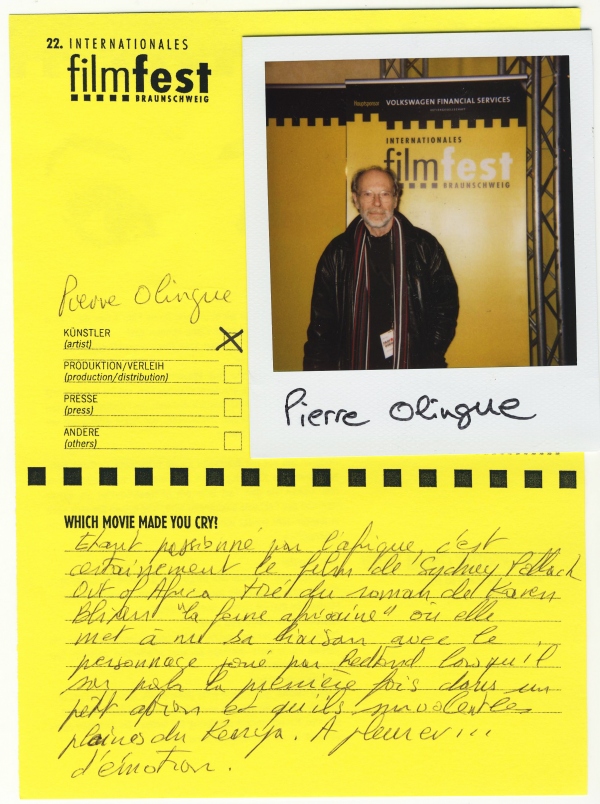 22. INTERNATIONALES
filmfest
BRAUNSCHWEIG
Hauptsponsor VOLKSWAGEN FINANCIAL SERVICES
INTERNATIONALES
filmfest
BRAUNSCHWEIG
Pierre Olingue
Pierre Olingue
KÜNSTLER
(artist)
PRODUKTION/VERLEIH
(production/distribution)
PRESSE
(press)
ANDERE
(others)
WHICH MOVIE MADE YOU CRY?
Etant passionné par l'afrique, c'est
certainement le film de Sydney Pollack
Out of Africa tiré du roman de Karen
Blixen "la ferme africaine" où elle
met à nu sa liaison avec le
personnage joué par Redford lorsqu'il
la première fois dans un
petit avion et qu'ils survolent les
plaines du Kenya. A pleurer...
d'émotion.